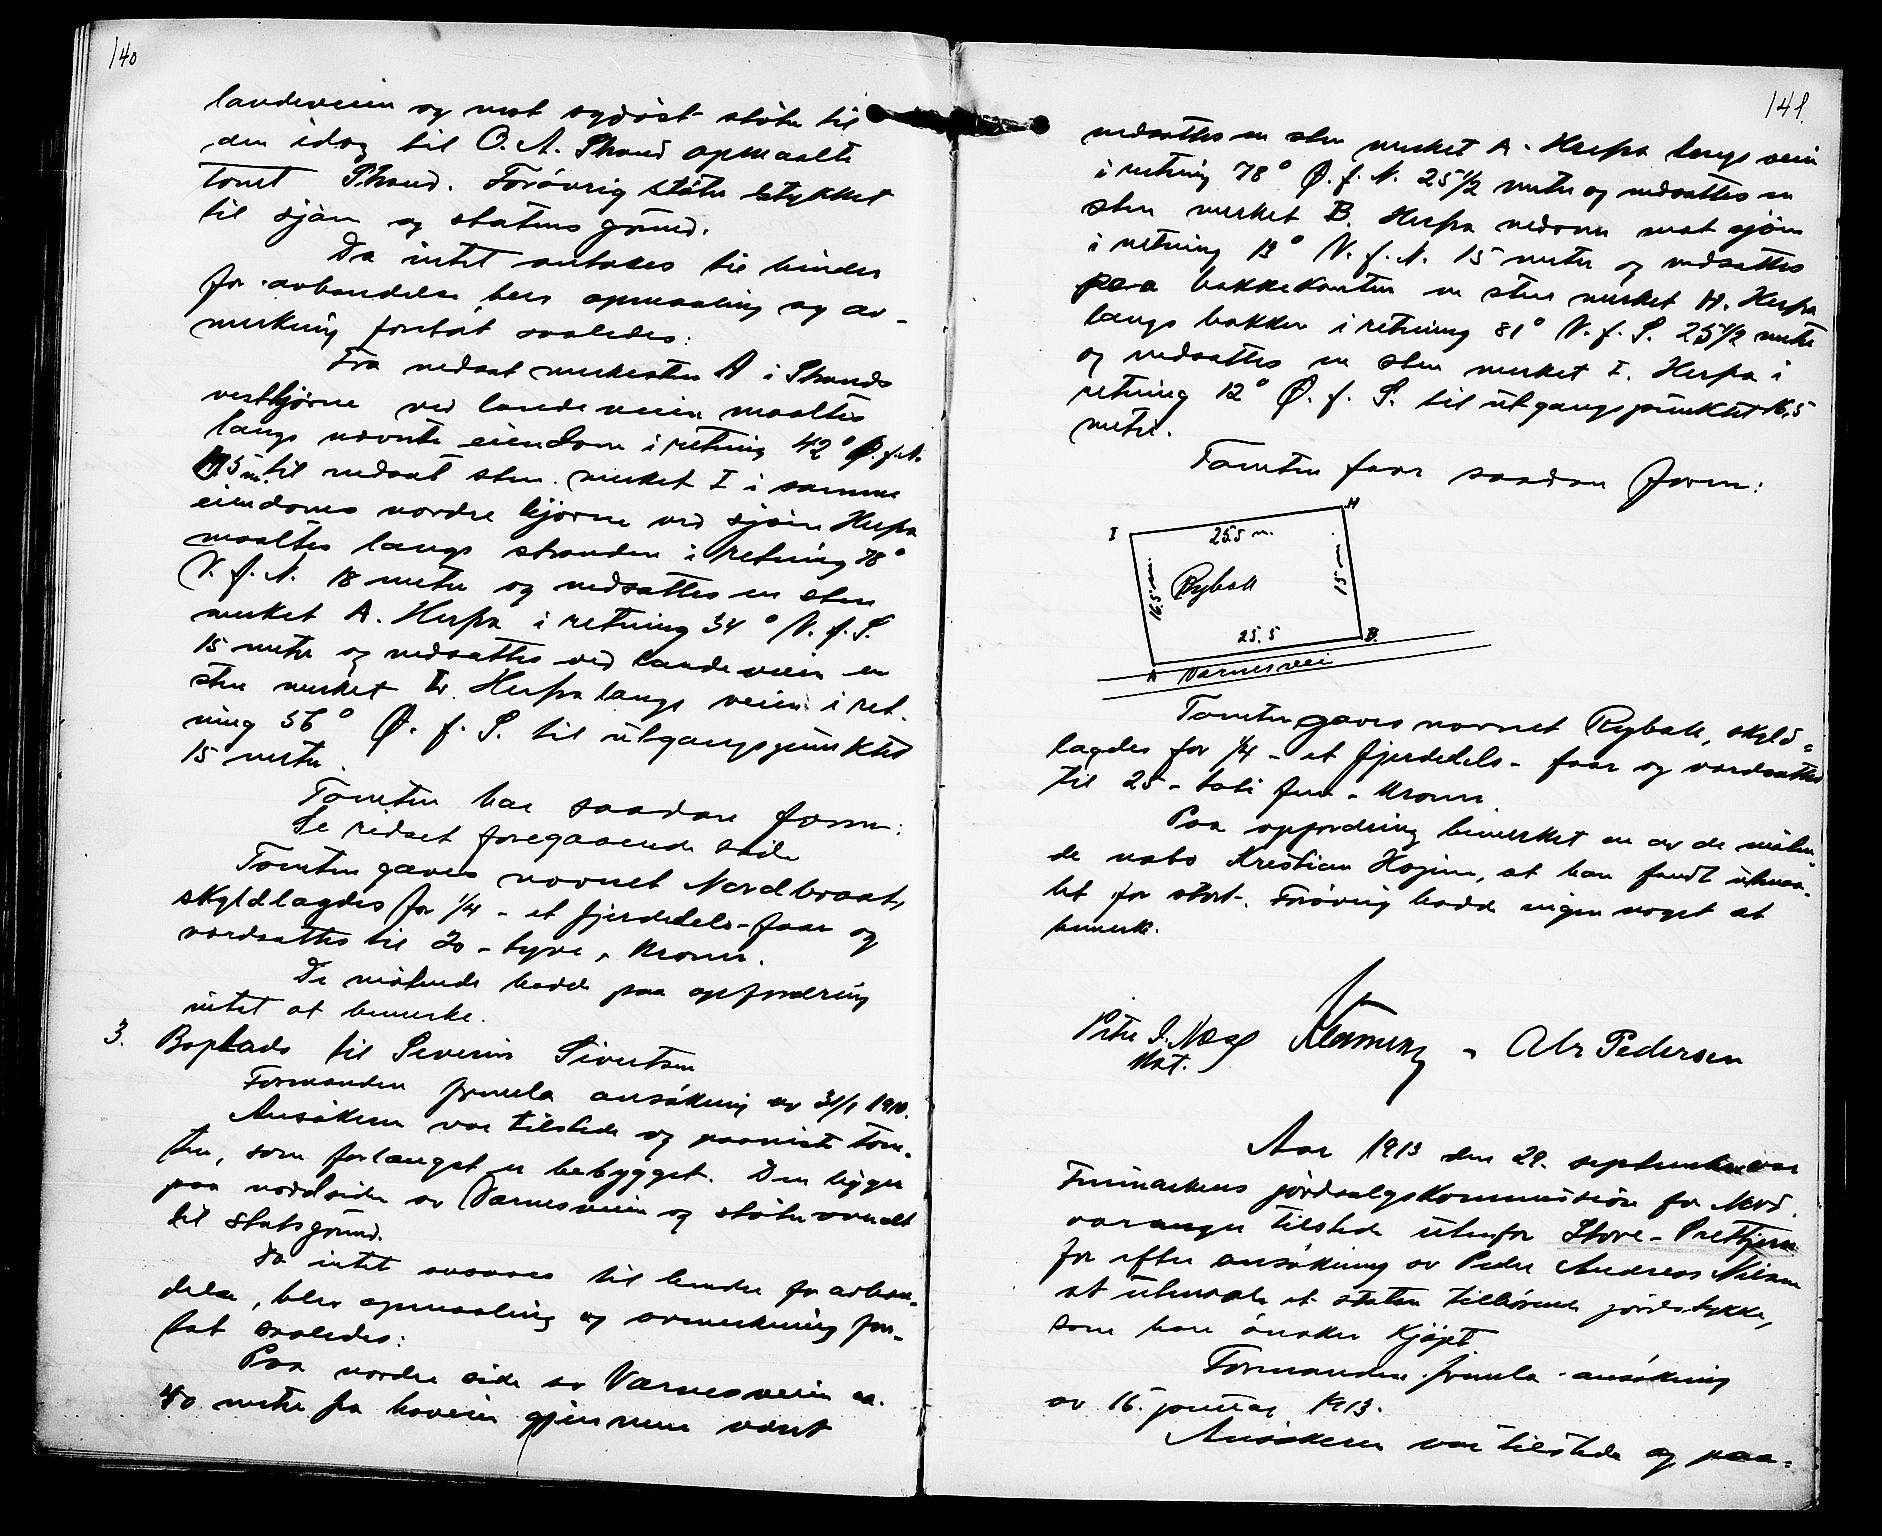 140
landeveien og mot sydöst stöte til
den idag til O. A. Strand opmaalte
tomt Strand. Forövrig stöte stykket
til sjöen og statens grund.
Da intet antokes til hinder
for avhendelse blev opmaaling og av-
merkning foretat saaledes:
Fra nedsat merkesten A i Strands
vesthjörne ved landeveien maaltes
langs nævnte eiendom i retning 42° Ø. f. N.
15 m. til nedsat sten merket I i samme
eiendoms nordre hjörne ved sjöen Herfra
maaltes langs stranden i retning 78°
V. f. N. 18 meter og nedsattes en sten
merket A. Herfra i retning 34° V. f. S.
15 meter og nedsattes ved landeveien en
sten merket Herfra langs veien i ret-
ning 56° Ø. f. S. til utgangspunktet
15 meter.
Tomten har saadan form:
Se ridset foregaaende side
Tomten gaves navnet Nordbraat,
skyldlagdes for 1/4 - et fjerdedels - faar og
værdsattes til 20 - tyve - kroner.
De mötende hadde paa opfordring
intet at bemerke.
3. Boplads til Severin Sivertsen
Formanden fremla ansökning av 31/1 1910.
Ansökeren var tilstede og paaviste tom-
ten, som forlængst er bebygget. Den ligger
paa nordsiden av Varnesveien og stöter overalt
til statsgrund.
Da intet ansaaes til hinder for avhen-
delse, blev opmaaling og avmerkning fore-
tat saaledes:
Paa nordre side av Varnesveien ca.
40 meter fra haveien gjennem været
141.
nedsattes en sten merket A. Herfra langs veien
i retning 78° Ø. f. N. 25 1/2 meter og nedsattes en
sten merket B. Herfra nedover mot sjöen
i retning 13° V. f. N. 15 meter og nedsattes
paa bakkekanten en sten merket H. Herfra
langs bakken i retning 81° V. f. S. 25 1/2 meter
og nedsattes en sten merket I. Herfra i
retning 12° Ø. f. S. til utgangspunktet 16,5
meter.
Tomten faar saadan form:
I H
25.5 m.
16.5 m. Rybak 15 m.
25.5
A B.
Varnesvei
Tomten gaves navnet Rybak, skyld-
lagdes for 1/4 - et fjerdedels - faar og værdsattes
til 25 - fem - kroner.
Paa opfordring bemerket en av de möten-
de nabo Kristian Hojem, at han fandt utmaa-
let for stort. Forövrig hadde ingen noget at
bemerke.
Abr Pedersen
Aar 1913 den 29. september var
Finmarkens jordsalgskommission for Nord-
varanger tilstede utenfor Store-Prestjern
for efter ansökning av Peder Andreas Nilsen
at utmaale et staten tilhörende jordstykke,
som han önsker kjöpt
Formanden fremla ansökning
av 16. januar 1913.
Ansökeren var tilstede og paa-